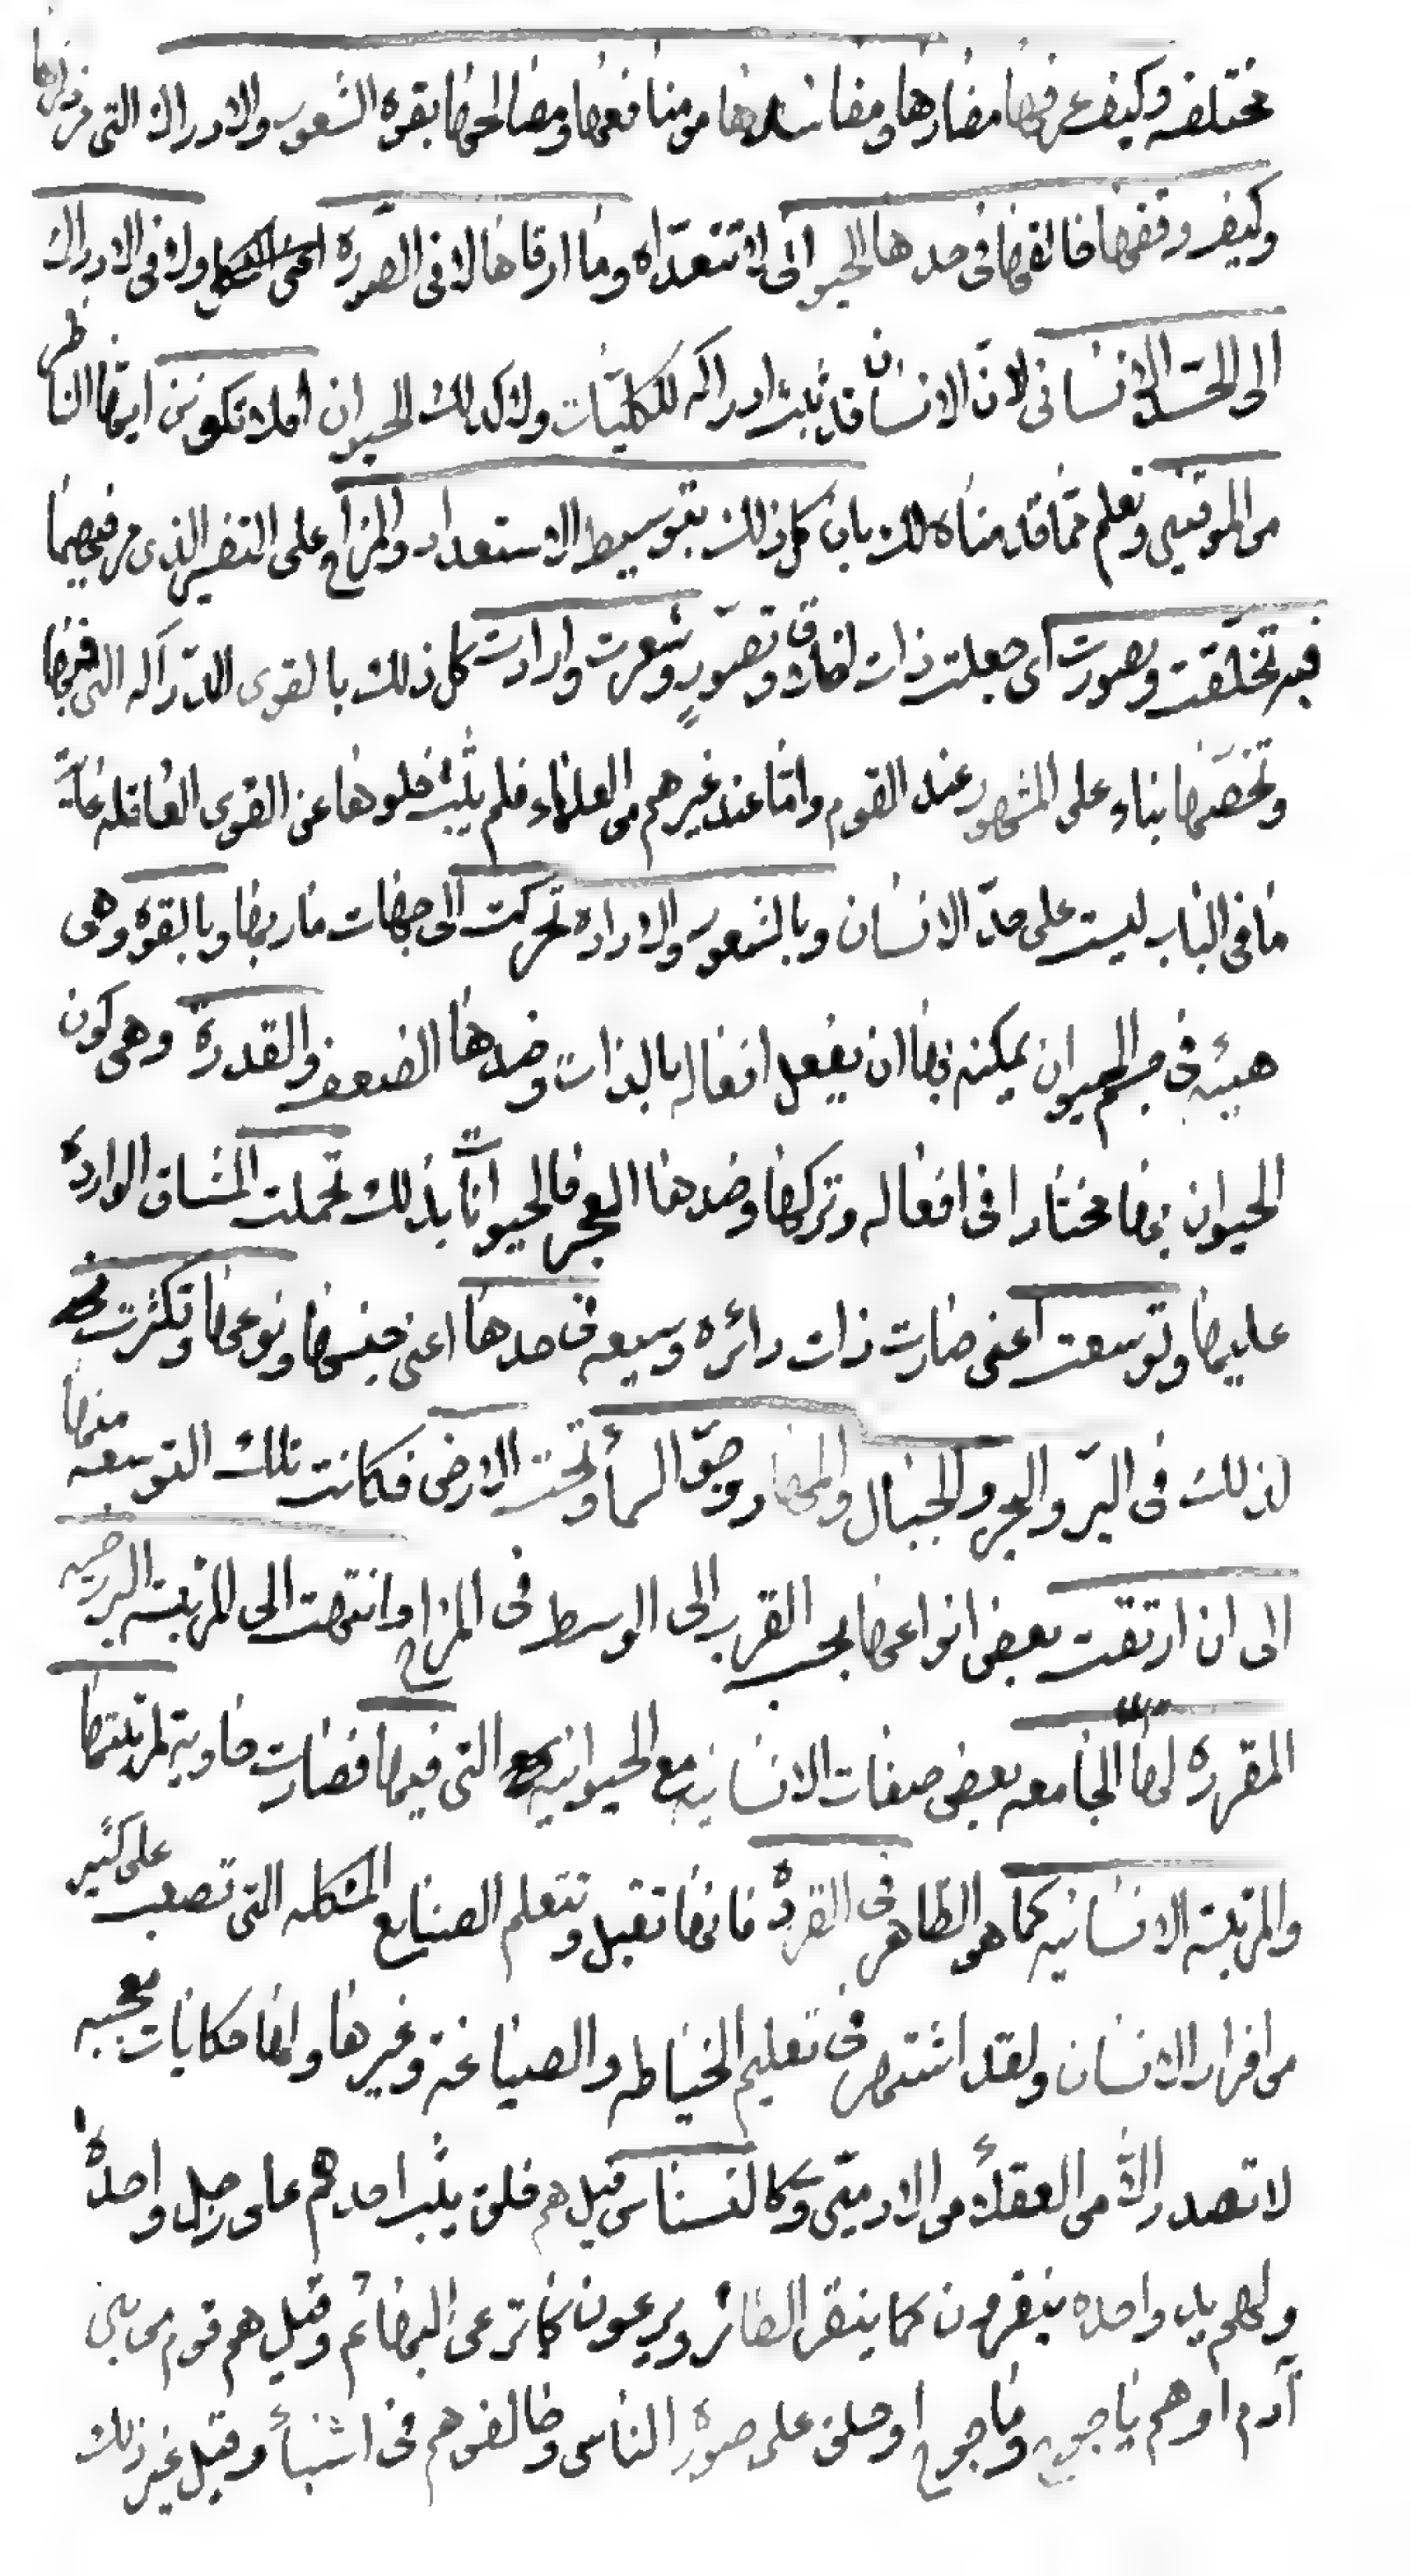 مختلفه وكيف عرفها مضارها ومفاسدها ومنافعها ومصالحها بقوه الشعور والادراك التى مر ذكرها
وكيف وقفها فابقها فى حدها الحيوانى لا تتعداه وما ارقاها لا فى الصورة ولا فى الادراك
الى الحد الانسانى لان الانسان قد يثبت ادراكه للكليات ولا كذلك الحيوان افلا تكونن ايها الناظر
من الموقنين وتعلم مما قدمناه لك بان كل ذلك بتوسيط الاستعداد والمزاج وعلى التفسير الذى مر فيهما
فبه تخلقت وصورت اى جعلت ذات اخلاق وتصور وشعرت وارادت كل ذلك بالقوى الدراكه التى فيها
وتخصها بناء على المشهور عند القوم واما عند غيرهم من العلماء فلم يثبت خلوها عن القوى العاقله غاية
ما فى الباب ليست على حد الانسان وبالشعور والاراده تحركت الى جهات ماربها وبالقوة وهى
هيئه فى جسم الحيوان يمكنه بها ان يفعل افعاله بالذات وضدها الضعف والقدرة وهى كون
الحيوان بها مختارا فى افعاله وتركها وضدها العجز فالحيوانات بذلك تحملت المشاق الوارده
عليها وتوسعت اعنى صارت ذات دائره وسيعه فى حدها اعنى جنسها ونوعها وتكثرت
لذلك فى البر والبحر والجبال والمهاد وجو السمأ وتحت الارض فكانت تلك التوسعه منها
الى ان ارتقت بعض انواعها بحسب القرب الى الوسط فى المزاج وانتهت الى المرتبة البرزخيه
المقرره لها الجامعه بعض صفات الانسانيه مع الحيوانيه التى فيها فصارت حاوية لمرتبتها
والمرتبة الانسانيه كما هو الظاهر فى القرده فانها تقبل وتتعلم الصنايع المشكله التى تصعب على كثير
من افراد الانسان ولقد اشتهر فى تعليم الخياطه والصياغة وغيرها ولها حكايات عجيبه
لا تصدر الا من العقلأ من الادميين وكالنسناس قيل هم خلق يثب احدهم على رجل واحدة
ولهم يد واحده ينقرون كما ينقر الطائر ويرعون كما ترعى البهائم وقيل هم قوم من بنى
آدم او هم ياجوج وماجوج او خلق على صورة الناس وخالفوهم فى اشيأ وقيل غير ذلك